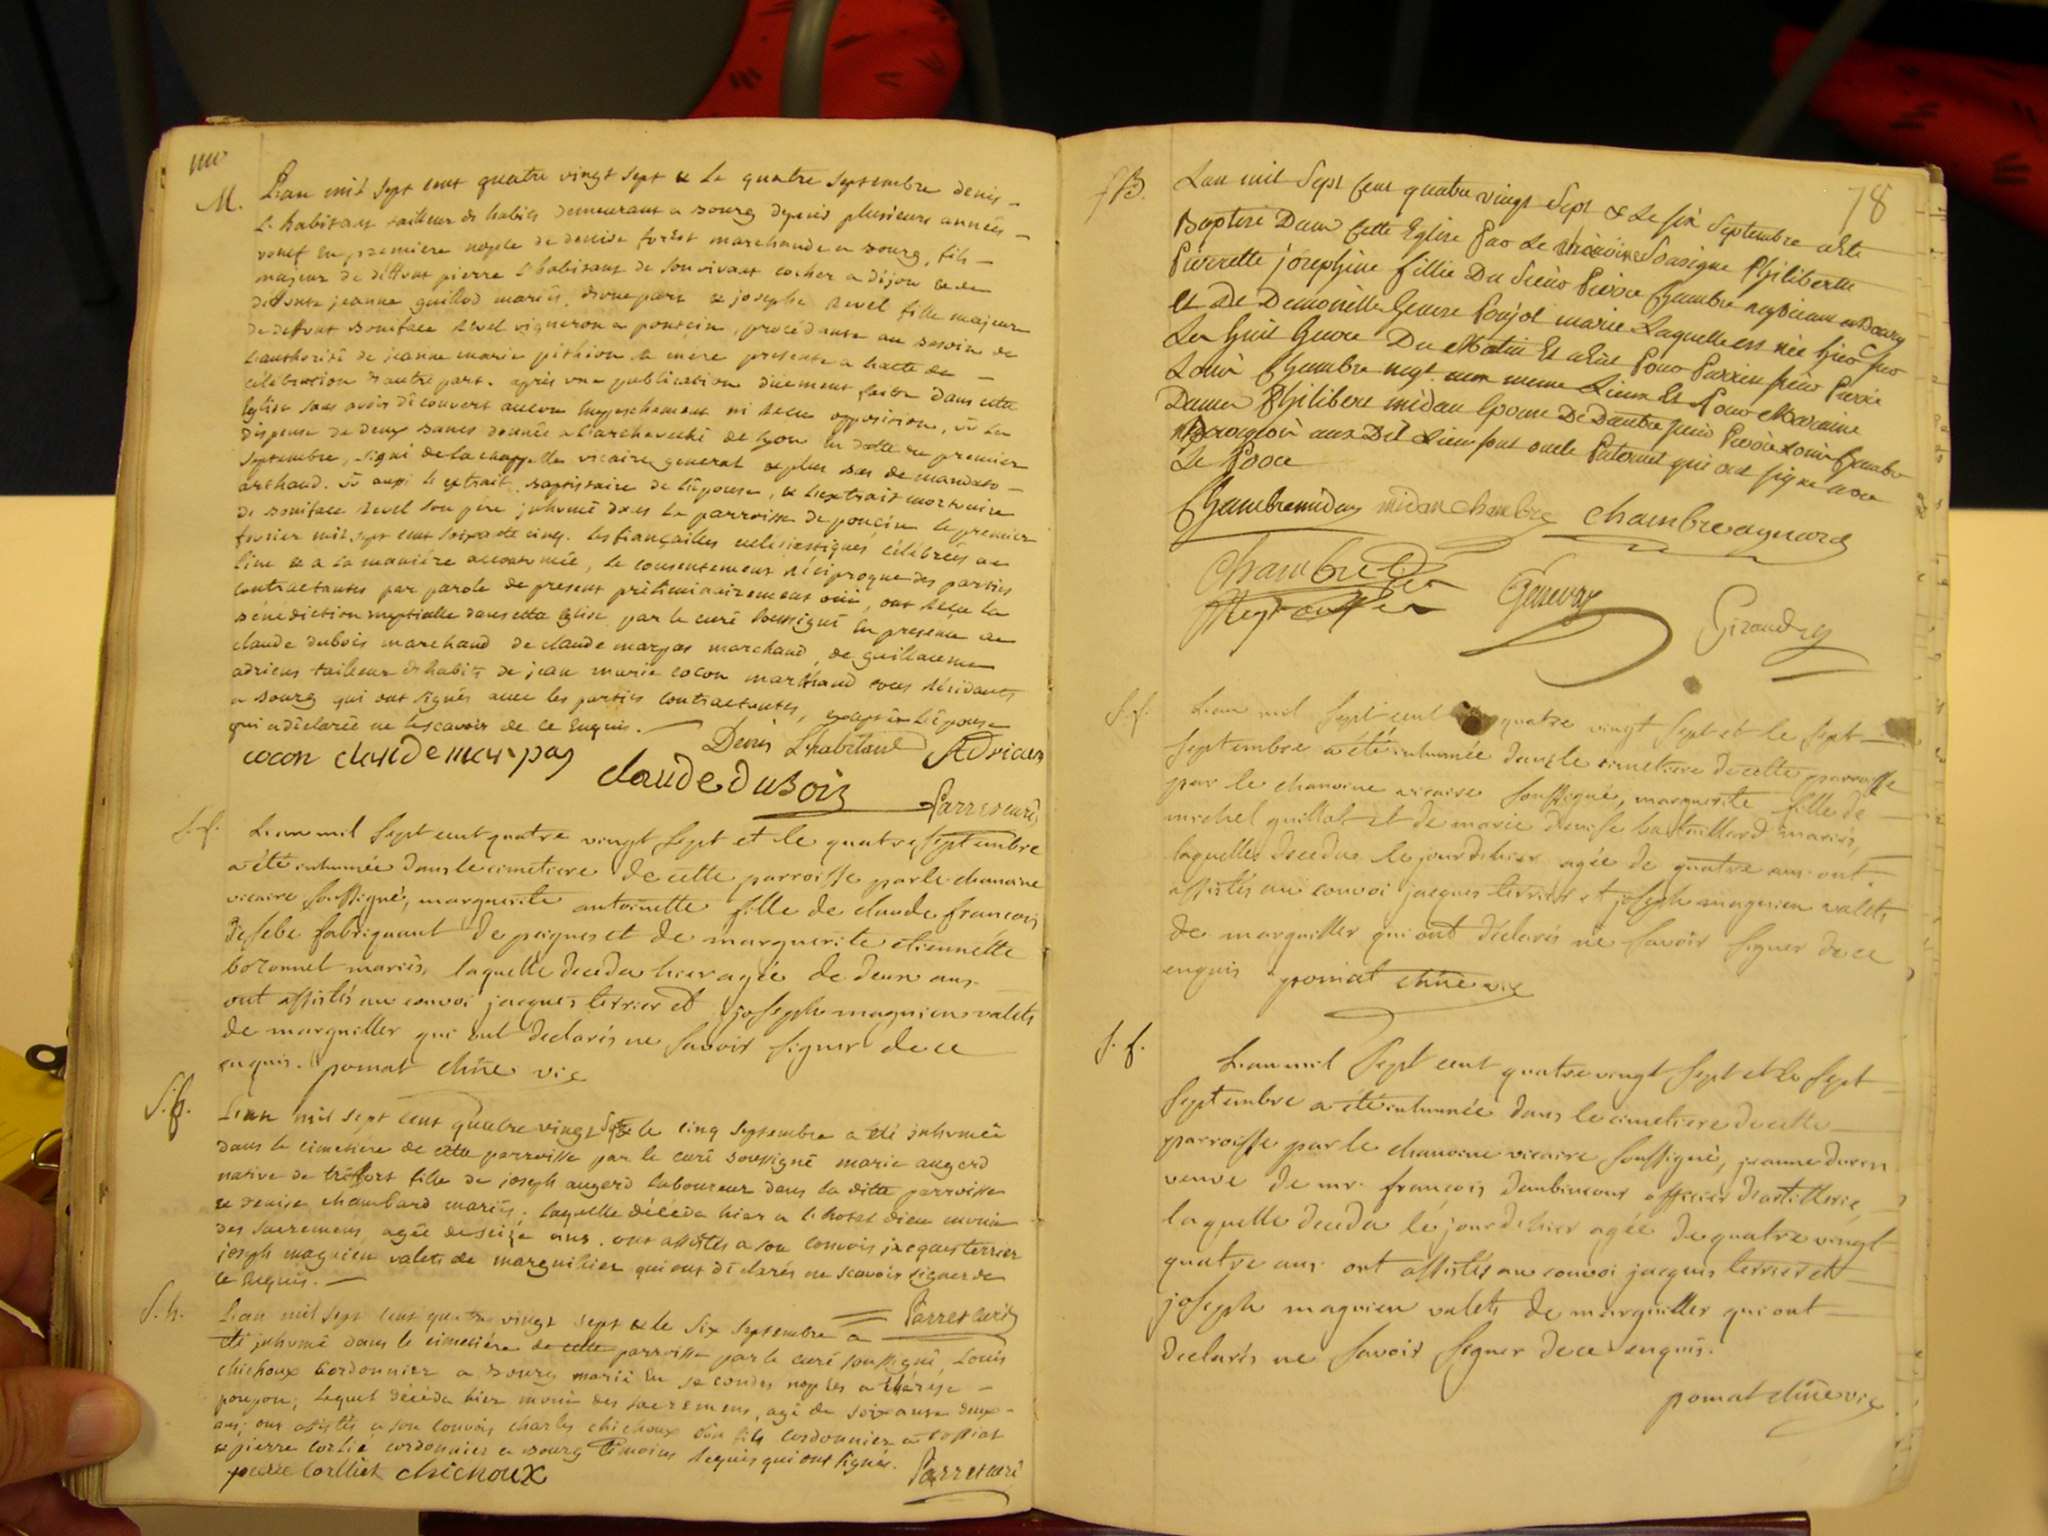 M.
L'an mil sept cent quatre vingt sept & le quatre septembre denis
l'habitant tailleur d'habits demeurant a bourg depuis plusieurs années
veuf en premiere nopce de denise forest marchande a bourg, fils
majeur de deffunt pierre l'habitant de son vivant cocher a dijon & de
deffunte jeanne guillod mariés, d'une part & josephe revel fille majeure
de deffunt boniface revel vigneron a poncin, procédante au besoin de
l'authorité de jeanne marie pithion sa mere presente a l'acte de
célébration d'autre part. après une publication duement faitte dans cette
église sans avoir découvert aucun empeschement ni reçu opposition, vu la
dispense de deux bancs donnée a l'archeveché de lyon en datte du premier
septembre, signé de la chappelle vicaire general & plus bas de mandato
archaud. vû aussi l'extrait baptistaire de l'épouse, & l'extrait mortuaire
de boniface revel son père inhumé dans la parroisse de poncin le premier
fevrier mil sept cent soixante cinq. les fiançailles ecclesiastiques célébrées au
lieu & a la manière accoutumée, le consentement réciproque des parties
contractantes par parole de present préliminairement ouï, ont reçu la
bénédiction nuptialle dans cette église par le curé soussigné en presence de
claude dubois marchand de claude marpas marchand, de guillaume
adriens tailleur d'habits de jean marie cocon marchand tous résidants
a bourg qui ont signés avec les parties contractantes, excepté l'épouse
qui a déclarée ne le scavoir de ce enquis.
Denis Lhabitant Adrien
cocon claude marpas
claude dubois
Parret curé
S.f.
L'an mil sept cent quatre vingt sept et le quatre septembre
a été inhumée dans le cimetiere de cette parroisse par le chanoine
vicaire soussigné, marguerite antoinette fille de claude francois
fabriquant de peignes et de marguerite etiennette
mariés, laquelle deceda hier agée de deux ans.
ont assistés au convoi jacques terrier et joseph magnien valets
de marguiller qui ont declarés ne savoir signer de ce
enquis. pomat chne vic
S.f.
L'an mil sept cent quatre vingt sept & le cinq septembre a été inhumée
dans le cimetière de cette parroisse par le curé soussigné marie augerd
native de tréffort fille de joseph augerd laboureur dans la ditte parroisse
& denise chambard mariés; laquelle décéda hier a l'hotel dieu munie
des sacremens, agée de seize ans. ont assistés a son convois jacques terrier
joseph magnien valets de marguillier qui ont déclarés ne scavoir signer de
ce enquis.
Parret curé
S.h.
L'an mil sept cent quatre vingt sept & le six septembre a
été inhumé dans le cimetière de cette parroisse par le curé soussigné, Louis
chichoux cordonnier a bourg marié en secondes nopces a thérèse
poujon; lequel décéda hier muni des sacremens, agé de soixante deux
ans; ont assistés a son convois charles chichoux son fils cordonnier a
& pierre cortié cordonnier a bourg témoins requis qui ont signés.
pierre chichoux Parret curé
78
B.
L'an mil Sept Cent quatre vingt Sept & Le six Septembre a Eté
Baptisé Dans Cette Eglise Par Le Soussigné Philiberte
Pierrette joséphine fillie Du Sieur Pierre Chambre negociant a Bourg
et De Demoiselle Poujol mariés Laquelle est née hier
Les huit heures Du Matin Et a Eut Pour Parrein sieur Pierre
Louis Chambre negt au meme Lieux Et Pour Marraine
Dame Philiberte midan Epouse De D'autre sieur Pierre Louis Chambre
aux Dit Lieu paternel qui ont signé avec
Le Pere
Chambre midan midan chambre chambre aynard
Chambre
Genevay Giraud
S.f.
L'an mil sept cent quatre vingt sept et le sept
septembre a été inhumée dans le cimetiere de cette parroisse
par le chanoine vicaire soussigné, marguerite fille de
michel guillot et de marie denise mariés,
laquelle deceda le jour d'hier agée de quatre ans ont
assistés au convoi jacques terrier et joseph magnien valets
de marguiller qui ont declarés ne savoir signer de ce
enquis pomat chne vic
S.f.
L'an mil sept cent quatre vingt sept et le sept
septembre a été inhumée dans le cimetiere de cette
parroisse par le chanoine vicaire soussigné, jeanne
veuve de mr. françois officier d'artillerie,
laquelle deceda le jour d'hier agée de quatre vingt
quatre ans. ont assistés au convoi jacques terrier et
joseph magnien valets de marguiller qui ont
declarés ne savoir signer de ce enquis.
pomat chne vic